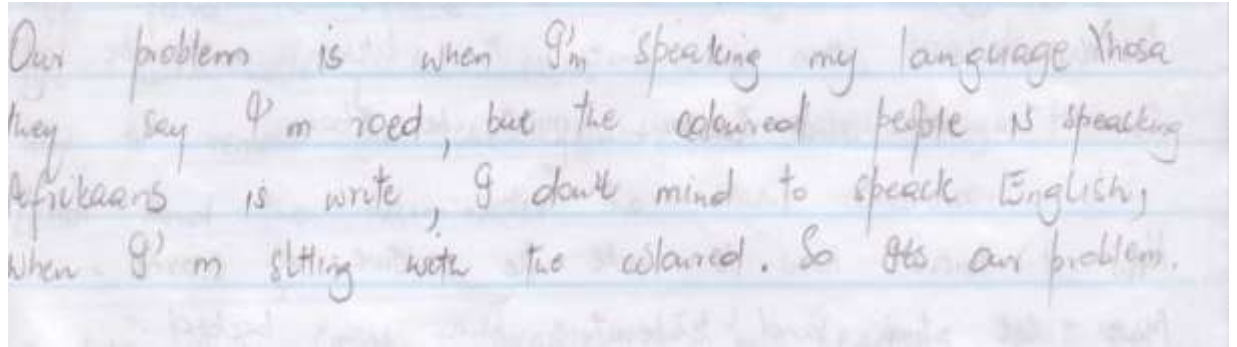 Our problem is when I'm speaking my language Xhosa
they say I'm roed, but the coloured people is speacking
Afrikaans is write, I don't mind to speack English,
when I'm sitting with the colaured. So Its our problem.